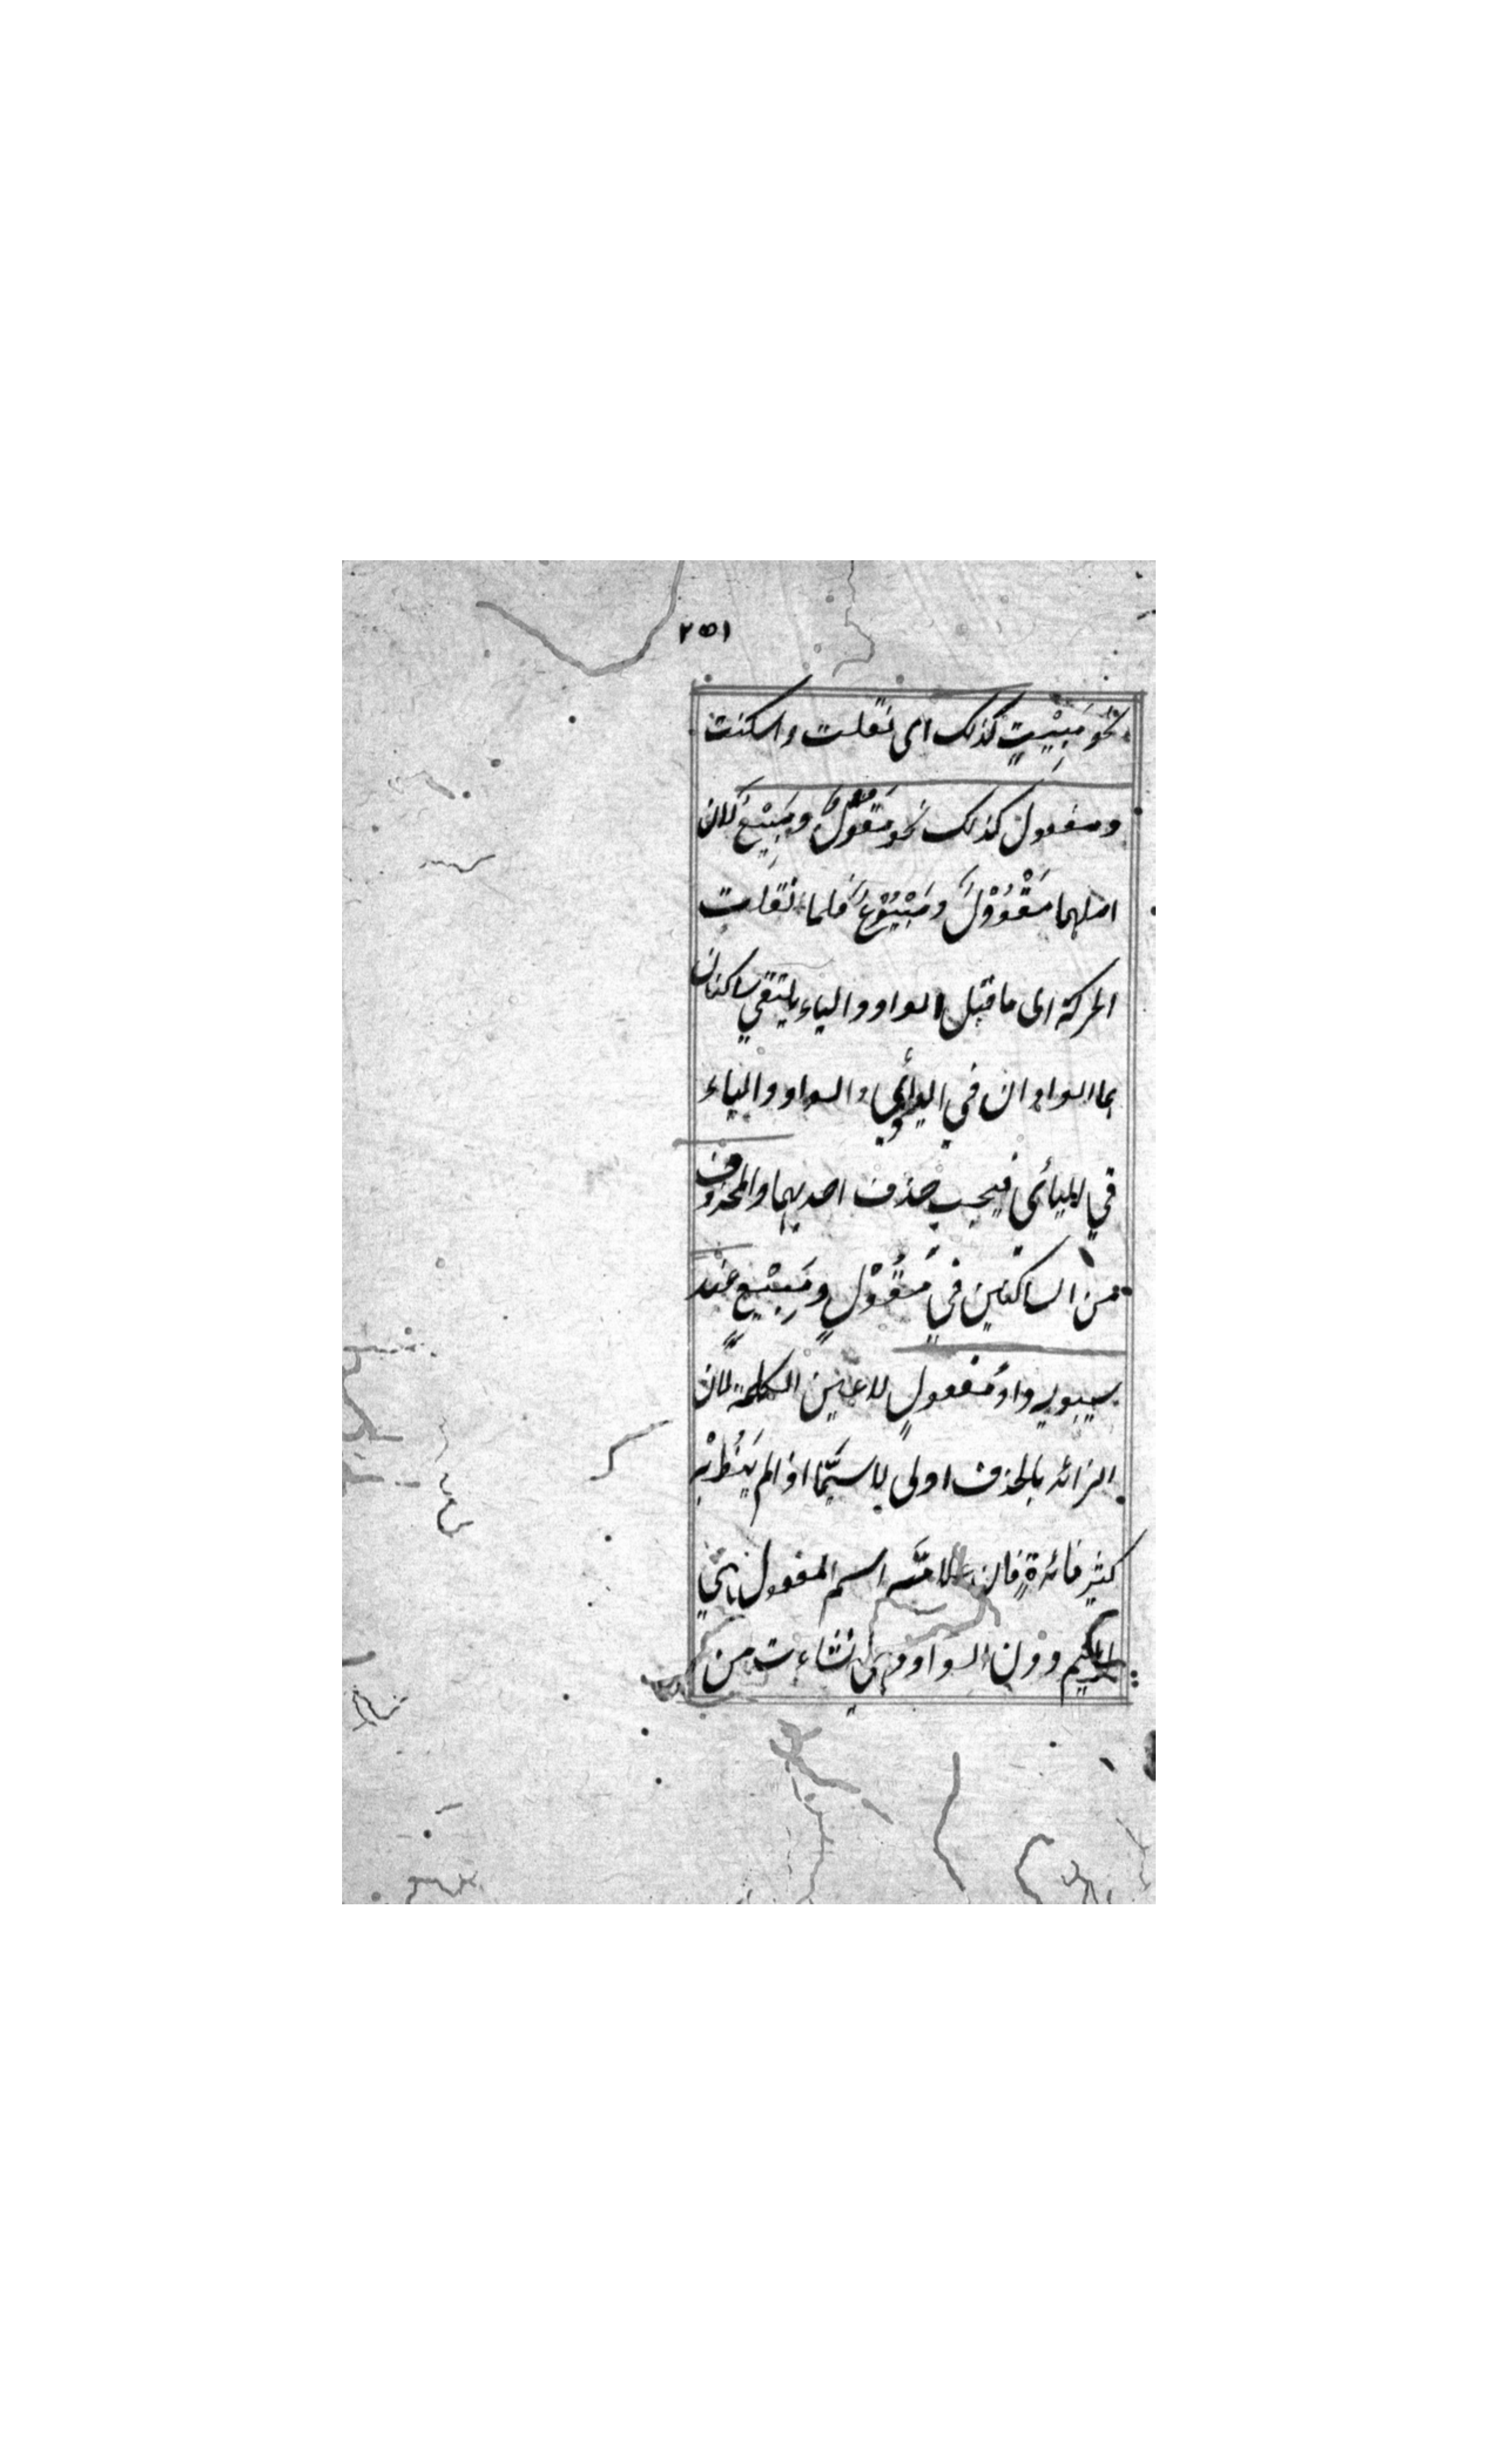 ٢٥١
نحو مَبِيْتٍ كذلك اى نقلت واسكنت
ومفعول كذلك نحو مَقُوْلٌ ومَبِيْعٌ كان
اصلهما مَقْوُوْلٌ ومَبْيُوْعٌ فلما نقلت
الحركة الى ما قبل الواو والياء يلتقي ساكنان
هما الواوان في الواوي والواو والياء
في اليائي فيجب حذف احديهما والمحذوف
من الساكنين في مَقُوْلٍ ومَبِيْعٍ عند
سيبويه واوُ مفعولٍ لا عين الكلمة لان
الزائد بالحذف اولى لا سيَّما اذا لم يَظْهر
كثير فائدةٍ فان علامته اسم المفعول انما هي
الميم دون الواو وهي نشاءت من